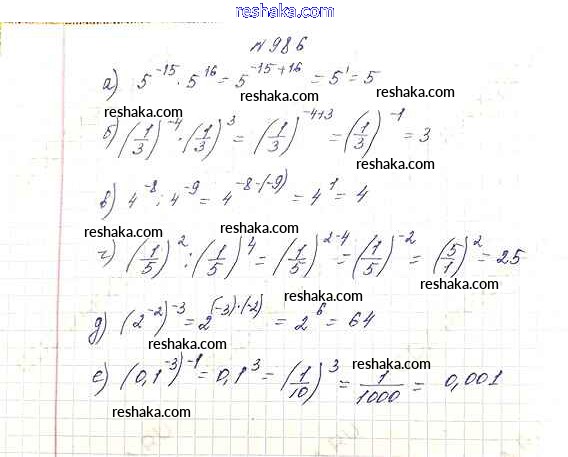 reshaka.com
№986
а) 5^-15 · 5^16 = 5^-15+16 = 5^1 = 5
reshaka.com
reshaka.com
б) (1/3)^-4 · (1/3)^3 = (1/3)^-4+3 = (1/3)^-1 = 3
reshaka.com
reshaka.com
в) 4^-8 : 4^-9 = 4^-8-(-9) = 4^1 = 4
reshaka.com
reshaka.com
г) (1/5)^2 : (1/5)^4 = (1/5)^2-4 = (1/5)^-2 = (5/1)^2 = 25
reshaka.com
д) (2^-2)^-3 = 2^(-3)·(-2) = 2^6 = 64
reshaka.com
е) (0,1^-3)^-1 = 0,1^3 = (1/10)^3 = 1/1000 = 0,001
reshaka.com
reshaka.com